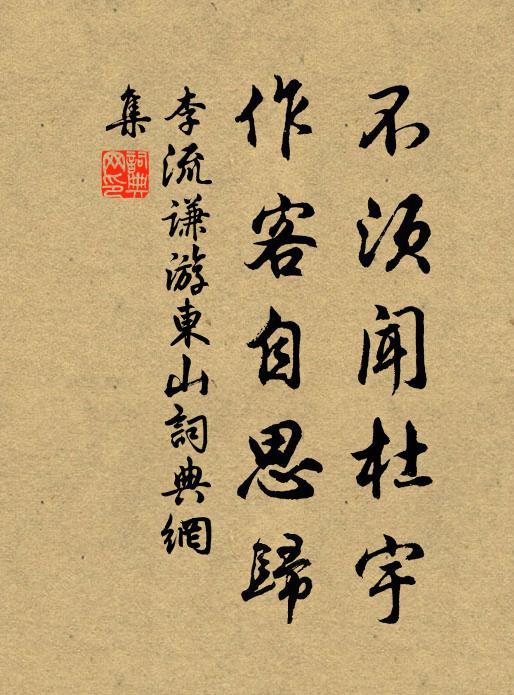 不須聞杜宇
作客自思歸
李流謙游東山詞典網
集
詞典網印